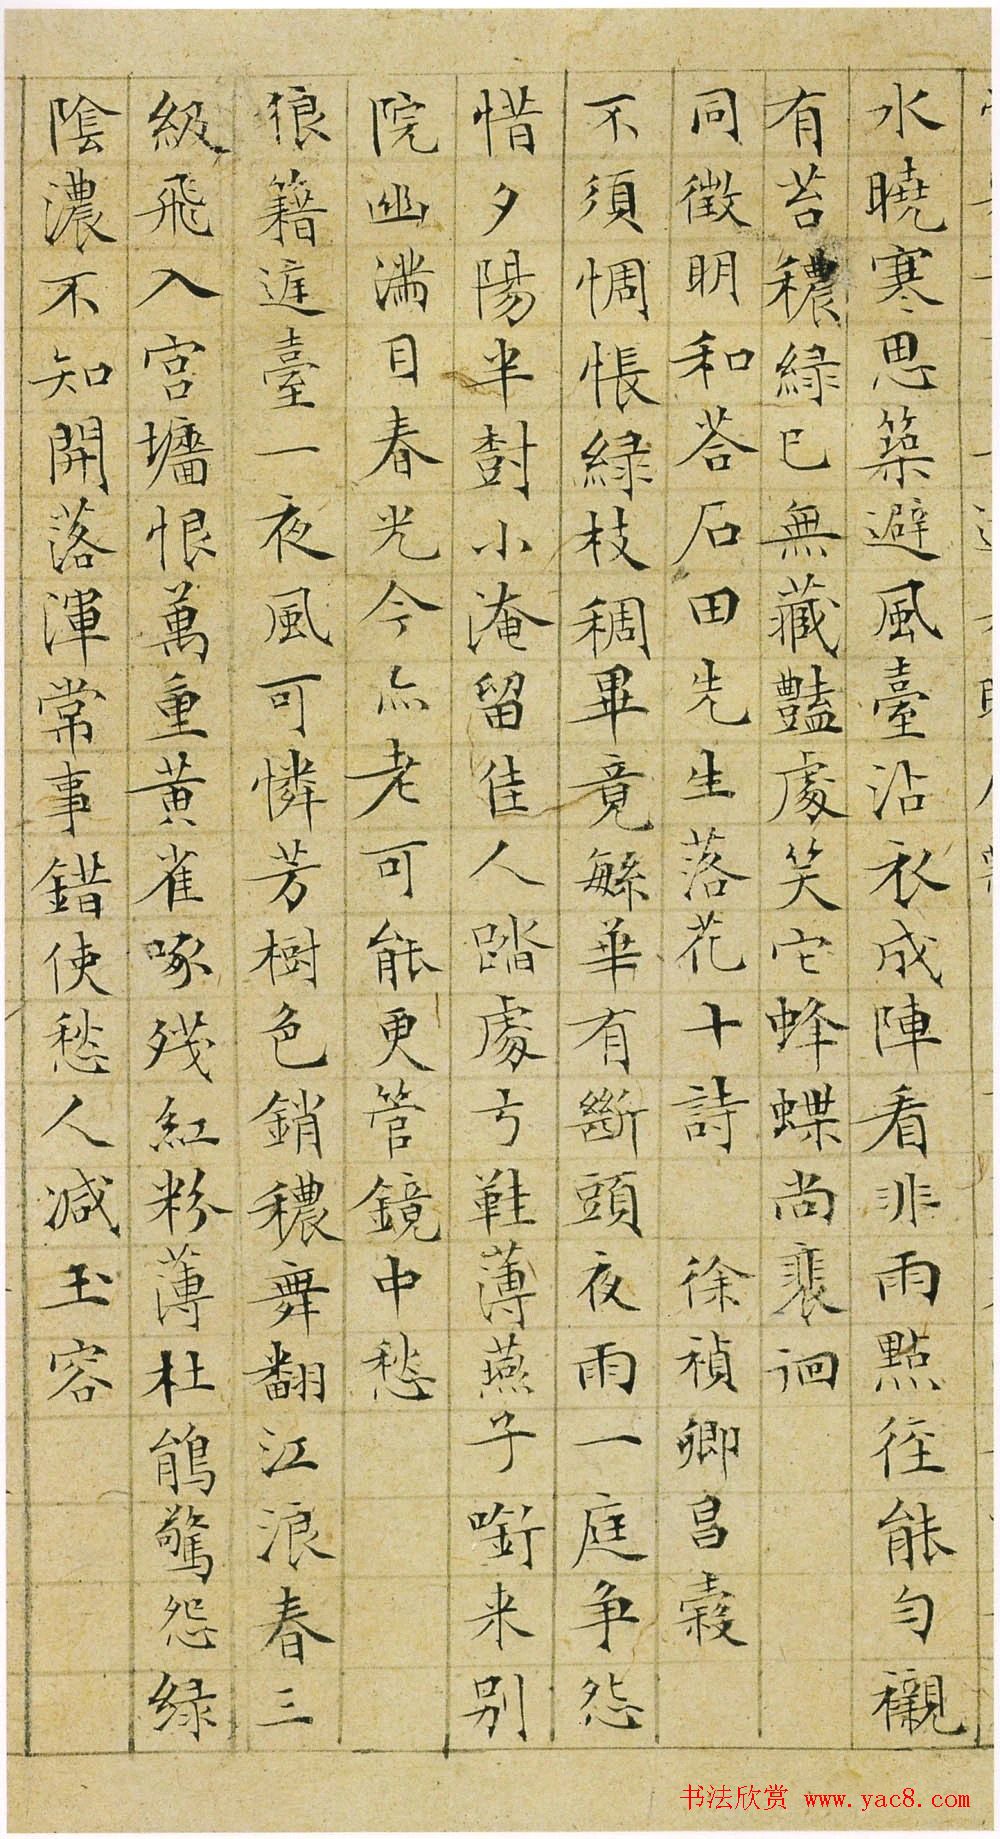 水曉寒思築避風臺沾衣成陣看非雨點徑能勻襯
有苔穠緑已無藏豔處笑它蜂蝶尚裴徊
同徵明和荅石田先生落花十詩 徐禎卿昌穀
不須惆悵緑枝稠畢竟緐華有斷頭夜雨一庭争怨
惜夕陽半樹小淹留佳人踏處弓鞋薄燕子啣来别
院幽滿目春光今亦老可能更管鏡中愁
狼籍庭臺一夜風可憐芳樹色銷穠舞翻江浪春三
級飛入宫墻恨萬重黄雀啄殘紅粉薄杜鵑驚怨緑
陰濃不知開落渾常事錯使愁人減玉容
书法欣赏 www.yac8.com